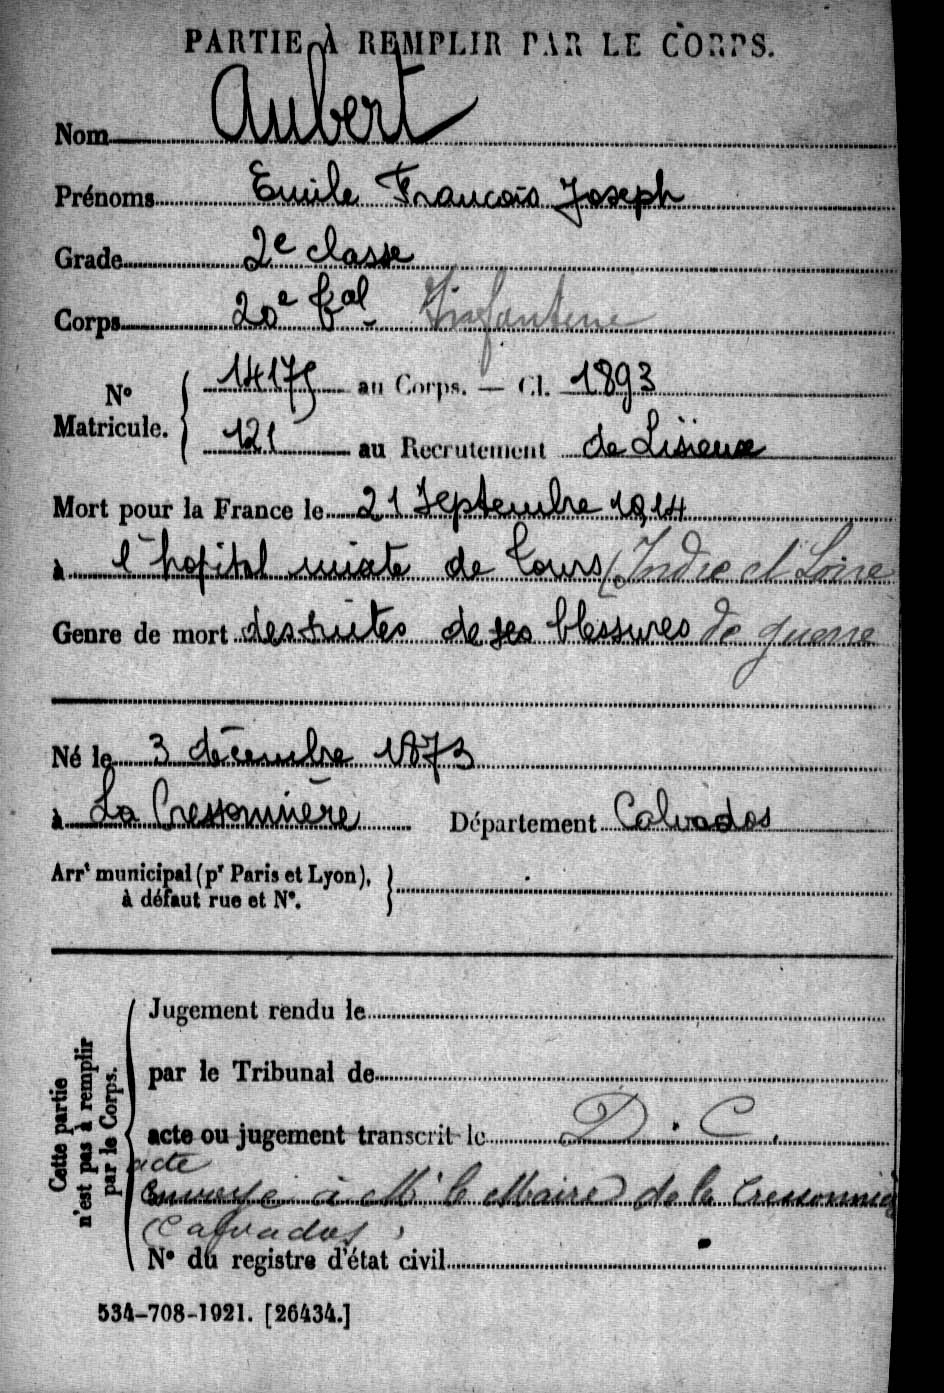 PARTIE À REMPLIR PAR LE CORPS.
Nom Aubert
Prénoms Emile Francois Joseph
Grade 2e classe
Corps 20e tal Infanterie
N° Matricule. { 14175 au Corps. — Cl. 1893
121 au Recrutement de Lisieux
Mort pour la France le 21 Septembre 1914
à l'hopital mixte de Tours (Indre et Loire
Genre de mort des suites de ses blessures de guerre
Né le 3 décembre 1873
à La Cressonnière Département Calvados
Arrt municipal (pr Paris et Lyon), }
à défaut rue et N°.
Cette partie n'est pas à remplir par le Corps. {
Jugement rendu le
par le Tribunal de
acte ou jugement transcrit le D. C.
acte
envoyé à Mr le Maire de la Cressonnière
(Calvados)
N° du registre d'état civil
534-708-1921. [26434.]